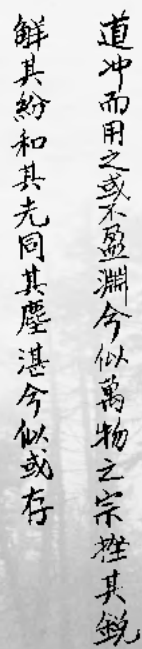 道冲而用之或不盈淵兮似萬物之宗挫其銳
解其紛和其光同其塵湛兮似或存